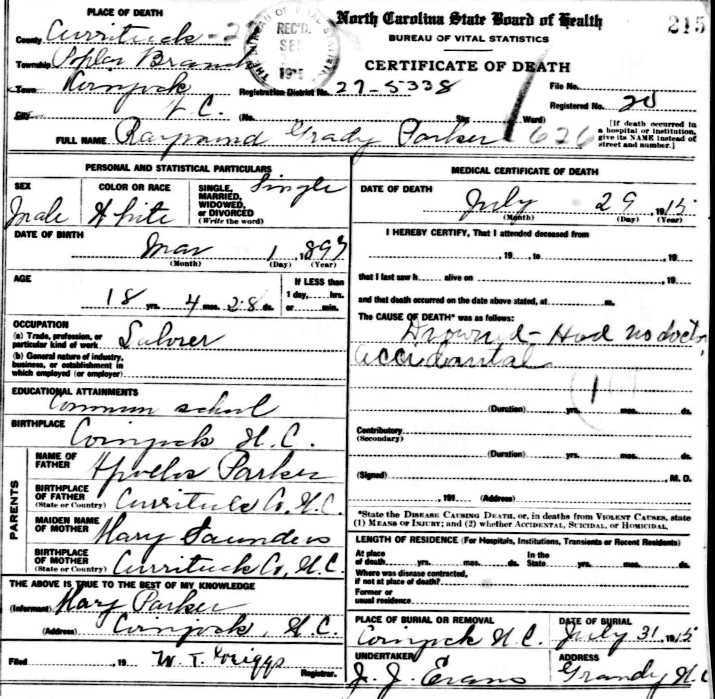 PLACE OF DEATH
County Currituck
Township Poplar Branch
Town Coinjock
City N.C.
THE BUREAU OF VITAL STATISTICS
REC'D.
North Carolina State Board of Health
215
BUREAU OF VITAL STATISTICS
CERTIFICATE OF DEATH
Registration District No. 27-5338
File No.
Registered No. 20
(No. St.; Ward)
[If death occurred in a hospital or institution, give its NAME instead of street and number.]
626
FULL NAME Raymond Grady Parker
PERSONAL AND STATISTICAL PARTICULARS
SEX
Male
COLOR OR RACE
White
SINGLE, MARRIED, WIDOWED, or DIVORCED (Write the word)
Single
DATE OF BIRTH
Mar 1, 1897
(Month) (Day) (Year)
AGE
18 yrs. 4 mos. 28 ds.
If LESS than 1 day, hrs. or min.
OCCUPATION
(a) Trade, profession, or particular kind of work Laborer
(b) General nature of industry, business, or establishment in which employed (or employer)
EDUCATIONAL ATTAINMENTS
Common school
BIRTHPLACE
Coinjock N.C.
PARENTS
NAME OF FATHER
Apollos Parker
BIRTHPLACE OF FATHER (State or Country)
Currituck Co, N.C.
MAIDEN NAME OF MOTHER
Mary Saunders
BIRTHPLACE OF MOTHER (State or Country)
Currituck Co, N.C.
THE ABOVE IS TRUE TO THE BEST OF MY KNOWLEDGE
(Informant) Mary Parker
(Address) Coinjock, N.C.
Filed , 19 W. T. Griggs
Registrar.
MEDICAL CERTIFICATE OF DEATH
DATE OF DEATH
July 29 1915
(Month) (Day) (Year)
I HEREBY CERTIFY, That I attended deceased from
, 19 , to , 19
that I last saw h alive on , 19
and that death occurred on the date above stated, at m.
The CAUSE OF DEATH* was as follows:
Drowned - Had no doctor
accidental
(Duration) yrs. mos. ds.
Contributory
(Secondary)
(Duration) yrs. mos. ds.
(Signed) M. D.
, 191 (Address)
*State the DISEASE CAUSING DEATH, or, in deaths from VIOLENT CAUSES, state
(1) MEANS OF INJURY; and (2) whether ACCIDENTAL, SUICIDAL, or HOMICIDAL.
LENGTH OF RESIDENCE (For Hospitals, Institutions, Transients or Recent Residents)
At place of death yrs. mos. ds. In the State yrs. mos. ds.
Where was disease contracted, if not at place of death?
Former or usual residence
PLACE OF BURIAL OR REMOVAL
Coinjock N.C.
DATE OF BURIAL
July 31 1915
UNDERTAKER
J. J. Evans
ADDRESS
Grandy N.C